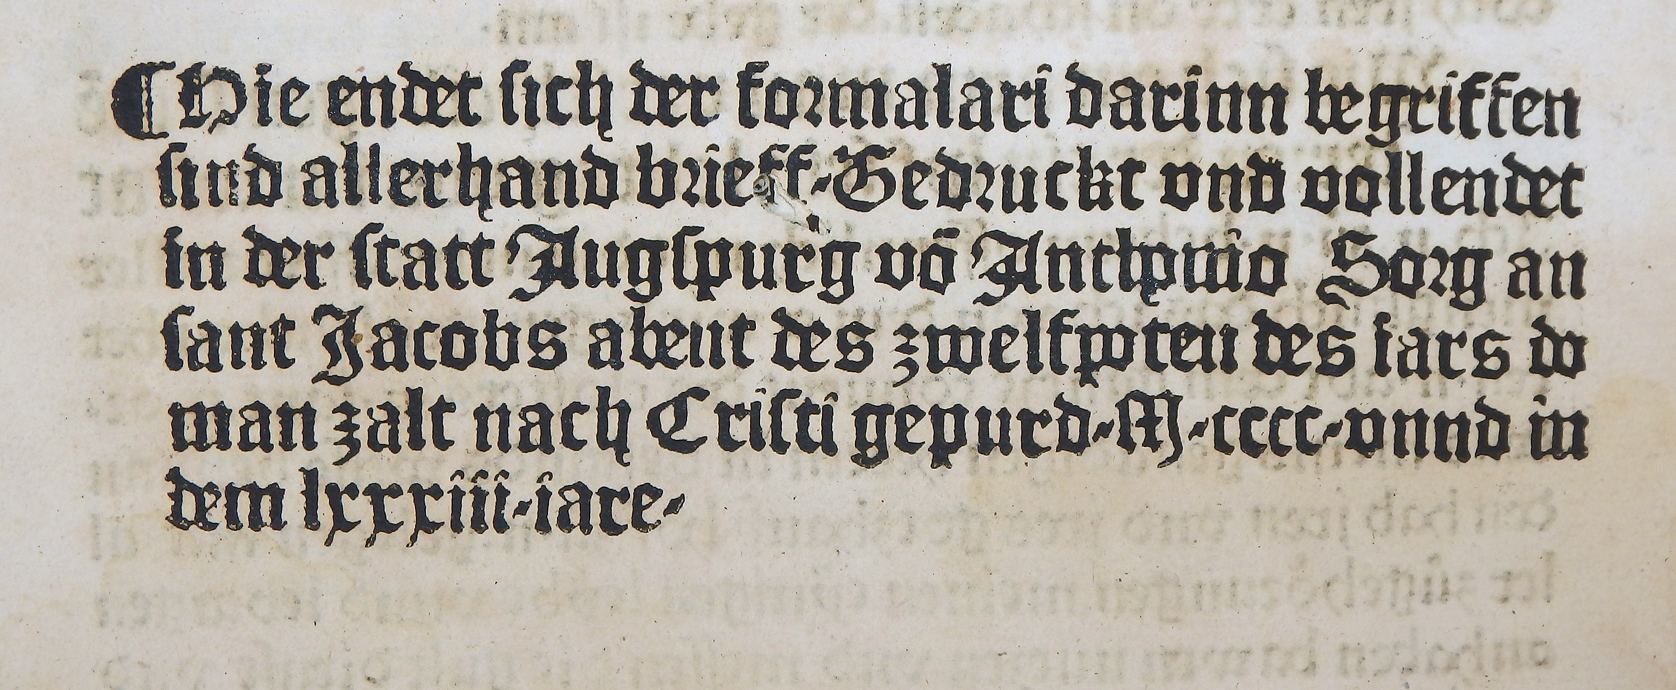 ¶Hie endet sich der formalari darinn begriffen
sind allerhand brieff·Gedruckt vnd vollendet
in der statt Augspurg vō Anthonio Sorg an
sant Jacobs abent des zwelfpoten des iars do
man zalt nach Cristi gepurd·M·cccc·vnnd in
dem lxxxiii·iare·